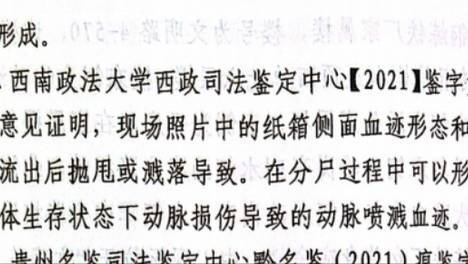 形成。
.西南政法大学西政司法鉴定中心【2021】鉴字
意见证明，现场照片中的纸箱侧面血迹形态和
流出后抛甩或溅落导致。在分尸过程中可以形
体生存状态下动脉损伤导致的动脉喷溅血迹。
贵州名鉴司法鉴定中心黔名鉴（2021）痕鉴字